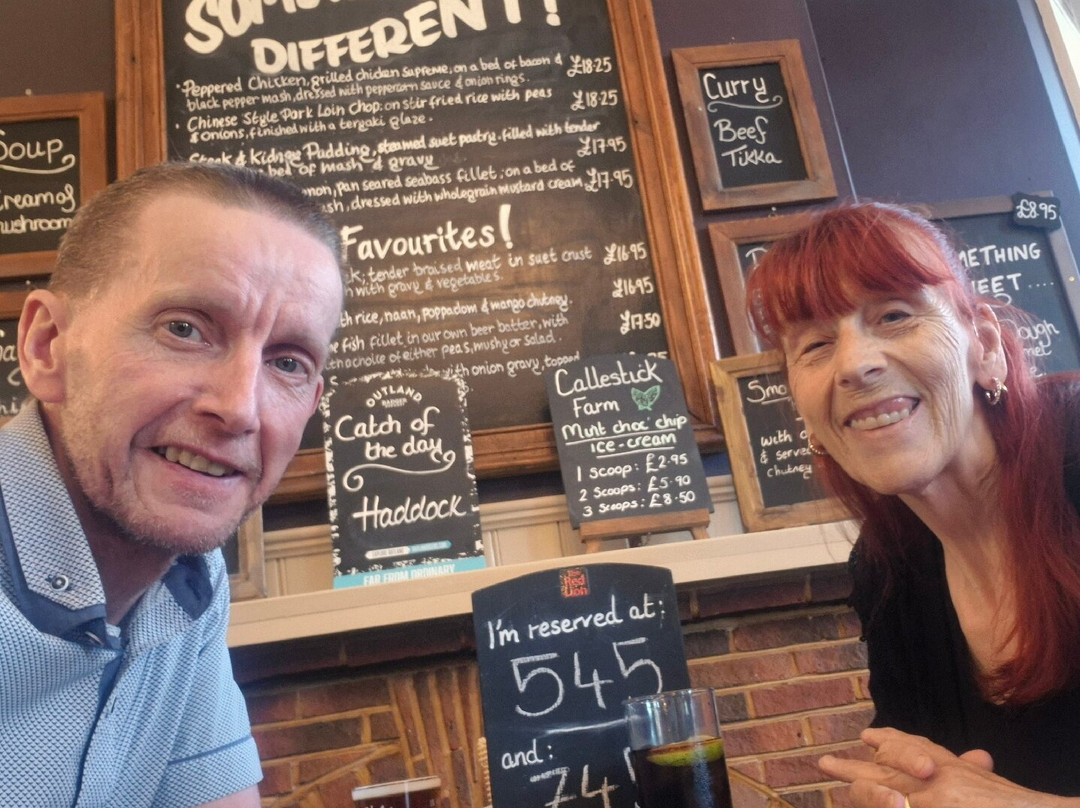 DIFFERENT!
• Peppered Chicken, grilled chicken supreme, on a bed of bacon &
black pepper mash, dressed with peppercorn sauce & onion rings.
£18·25
• Chinese Style Pork Loin Chop; on stir fried rice with peas
& onions, finished with a teryaki glaze.
£18·25
Steak & Kidney Pudding, steamed suet pastry filled with tender
bed of mash & gravy
£17·95
pan seared seabass fillet, on a bed of
dressed with wholegrain mustard cream
£17·95
Favourites!
tender braised meat in suet crust
with gravy & vegetables.
£16·95
rice, naan, poppadom & mango chutney.
£16·95
fish fillet in our own beer batter, with
a choice of either peas, mushy or salad.
£17·50
with onion gravy, topped
Soup
Cream of
mushroom
Curry
Beef
Tikka
£8.95
OUTLAND
Catch of
the day
Haddock
FAR FROM ORDINARY
Callestick
Farm
Mint choc chip
ice-cream
1 Scoop: £2·95
2 Scoops: £5·90
3 Scoops: £8·50
with
& serve
chutney
The
Red
Lion
I'm reserved at:
545
and: